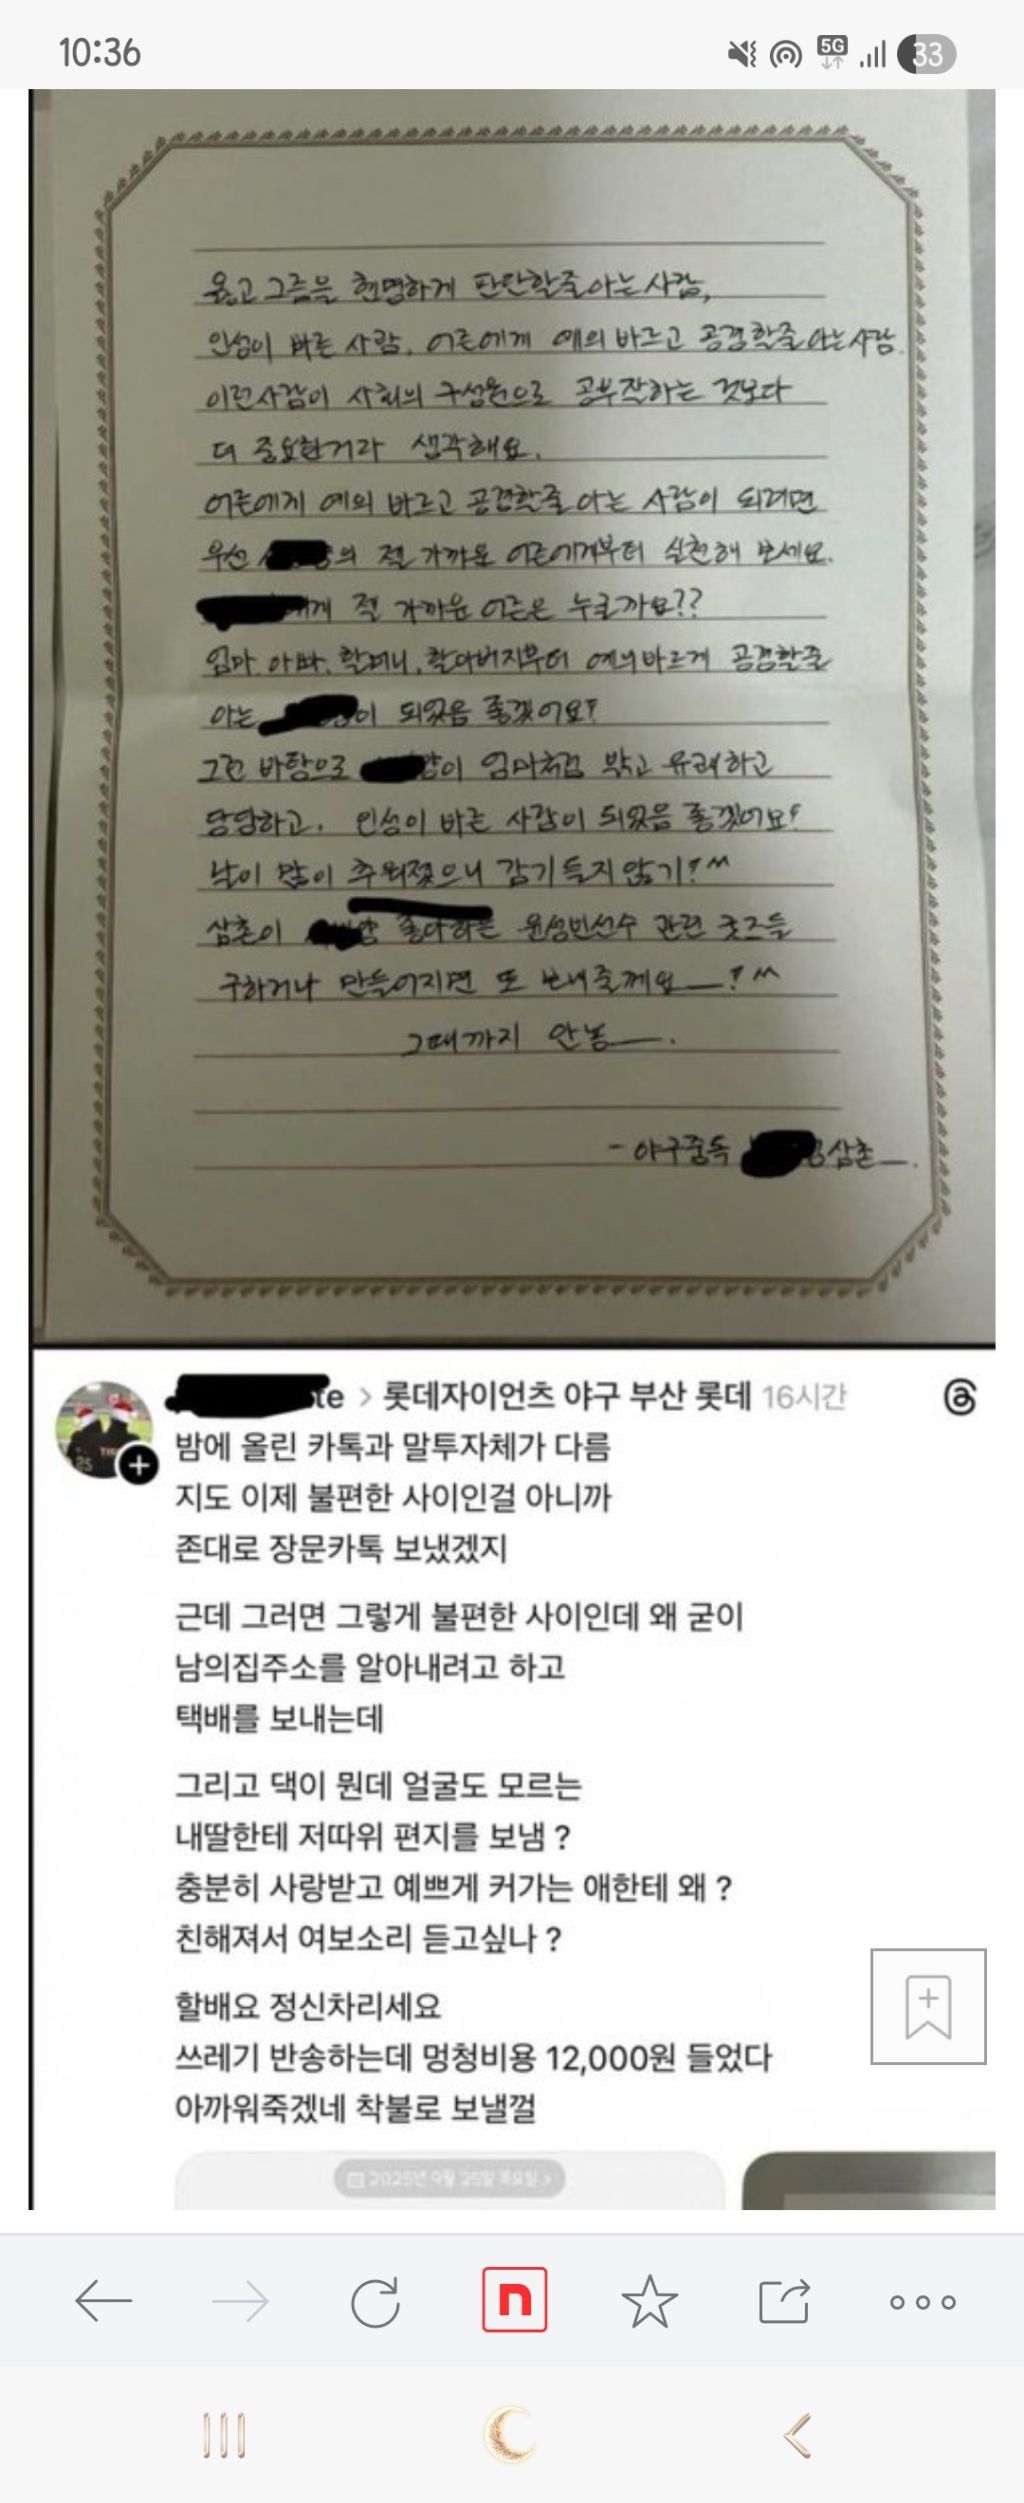 10:36
5G
33
옳고 그름을 현명하게 판단할줄아는 사람,
인성이 바른 사람, 어른에게 예의 바르고 공경할줄 아는사람.
이런사람이 사회의 구성원으로 공부잘하는 것보다
더 중요한거라 생각해요.
어른에게 예의 바르고 공경할줄 아는 사람이 되려면
우선 의 젤 가까운 어른에게부터 실천해 보세요.
에게 젤 가까운 어른은 누굴까요??
엄마, 아빠, 할머니, 할아버지부터 예의바르게 공경할줄
아는 이 되었음 좋겠어요!
그런 바탕으로 이 엄마처럼 밝고 유쾌하고
당당하고, 인성이 바른 사람이 되었음 좋겠어요!
날이 많이 추워졌으니 감기 들지않기!^^
삼촌이 좋아하는 윤성빈선수 관련 굿즈들
구하거나 만들어지면 또 보내줄께요ㅡ!^^
그때까지 안뇽ㅡ.
- 야구중독 삼촌ㅡ.
te > 롯데자이언츠 야구 부산 롯데 16시간
밤에 올린 카톡과 말투자체가 다름
지도 이제 불편한 사이인걸 아니까
존대로 장문카톡 보냈겠지
근데 그러면 그렇게 불편한 사이인데 왜 굳이
남의집주소를 알아내려고 하고
택배를 보내는데
그리고 댁이 뭔데 얼굴도 모르는
내딸한테 저따위 편지를 보냄 ?
충분히 사랑받고 예쁘게 커가는 애한테 왜 ?
친해져서 여보소리 듣고싶나 ?
할배요 정신차리세요
쓰레기 반송하는데 멍청비용 12,000원 들었다
아까워죽겠네 착불로 보낼껄
2025년 9월 25일 목요일 >
n